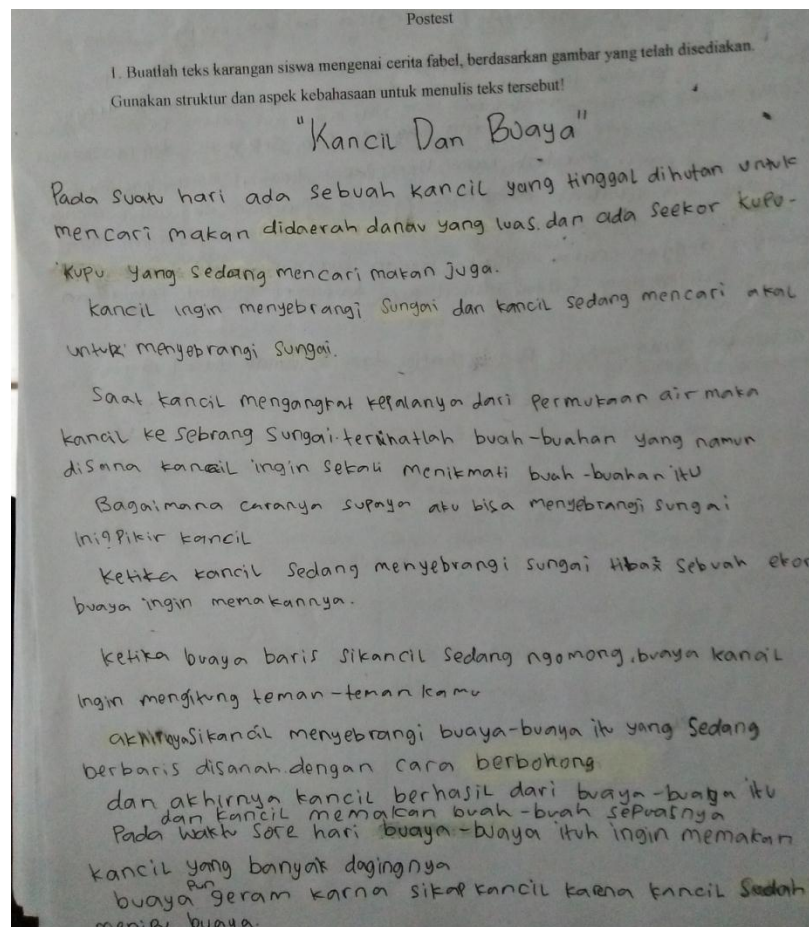 Postest
1. Buatlah teks karangan siswa mengenai cerita fabel, berdasarkan gambar yang telah disediakan.
Gunakan struktur dan aspek kebahasaan untuk menulis teks tersebut!
"Kancil Dan Buaya"
Pada suatu hari ada sebuah kancil yang tinggal dihutan untuk
mencari makan didaerah danau yang luas. dan ada seekor kupu-
kupu yang sedang mencari makan juga.
kancil ingin menyebrangi sungai dan kancil sedang mencari akal
untuk menyebrangi sungai.
Saat kancil mengangkat kepalanya dari permukaan air maka
kancil ke sebrang sungai. terlihatlah buah-buahan yang namun
disana kancil ingin sekali menikmati buah-buahan itu
Bagaimana caranya supaya aku bisa menyebrangi sungai
ini? Pikir kancil
ketika kancil sedang menyebrangi sungai tiba² sebuah ekor
buaya ingin memakannya.
ketika buaya baris sikancil sedang ngomong, buaya kancil
ingin mengitung teman-teman kamu
akhirnya sikancil menyebrangi buaya-buaya itu yang sedang
berbaris disanah. dengan cara berbohong
dan akhirnya kancil berhasil dari buaya-buaya itu
dan kancil memakan buah-buah sepuasnya
Pada waktu sore hari buaya-buaya ituh ingin memakan
kancil yang banyak dagingnya
buaya pun geram karna sikap kancil karna kancil sudah
buaya.